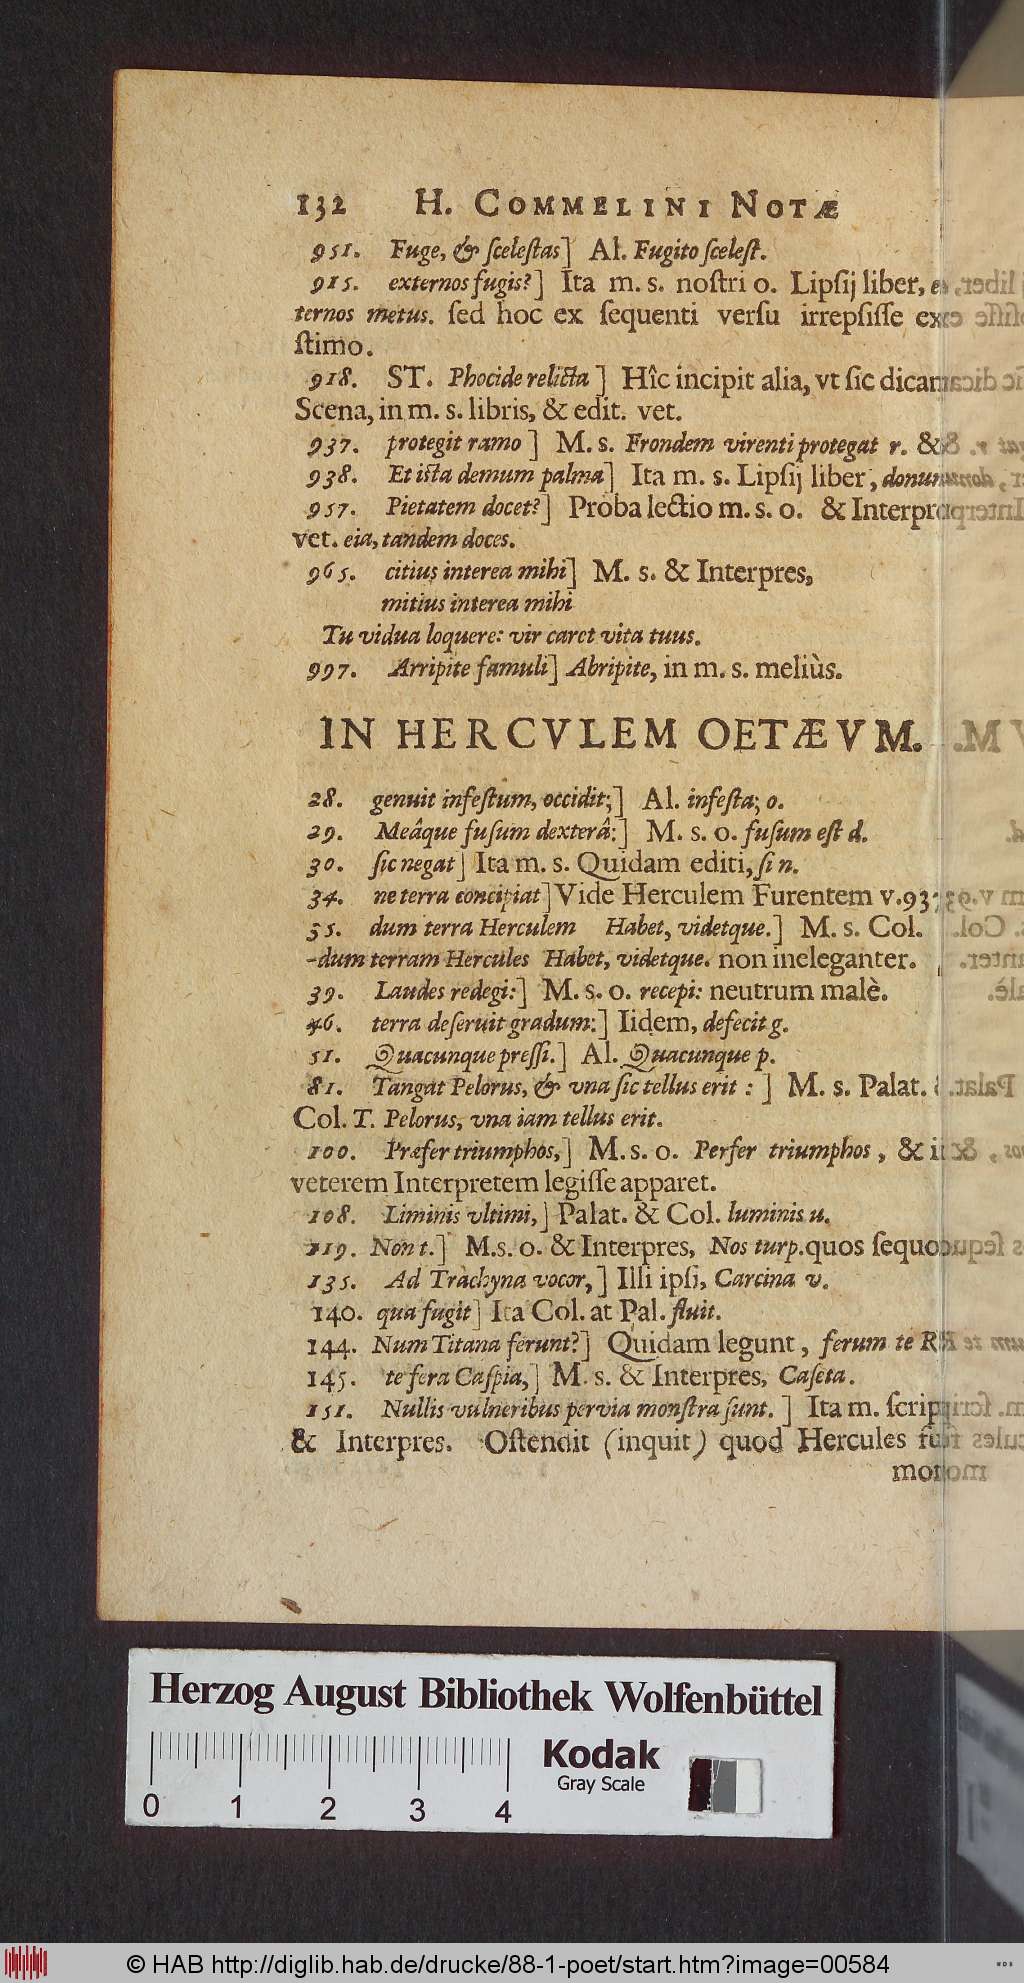 132 H. COMMELINI NOTÆ
951. Fuge, & ſceleſtas] Al. Fugito ſceleſt.
915. externos fugis?] Ita m. s. noſtri o. Lipſij liber,
ternos metus. ſed hoc ex ſequenti verſu irrepſiſſe
ſtimo.
918. ST. Phocide relicta] Hîc incipit alia, vt ſic dicam
Scena, in m. s. libris, & edit. vet.
937. protegit ramo] M. s. Frondem virenti protegat r. &
938. Et iſta demum palma] Ita m. s. Lipſij liber,
957. Pietatem docet?] Proba lectio m. s. o. & Interpr
vet. eia, tandem doces.
965. citius interea mihi] M. s. & Interpres,
mitius interea mihi
Tu vidua loquere: vir caret vita tuus.
997. Arripite famuli] Abripite, in m. s. meliùs.
IN HERCVLEM OETÆVM.
28. genuit infeſtum, occidit;] Al. infeſta; o.
29. Meâque fuſum dexterâ:] M. s. o. fuſum eſt d.
30. ſic negat] Ita m. s. Quidam editi, ſi n.
34. ne terra concipiat] Vide Herculem Furentem v.93
35. dum terra Herculem Habet, videtque.] M. s. Col.
-dum terram Hercules Habet, videtque. non ineleganter.
39. Laudes redegi:] M. s. o. recepi: neutrum malè.
46. terra deſeruit gradum:] Iidem, defecit g.
51. Quacunque preſſi.] Al. Quacunque p.
81. Tangat Pelorus, & vna ſic tellus erit :] M. s. Palat.
Col. T. Pelorus, vna iam tellus erit.
100. Præfer triumphos,] M. s. o. Perfer triumphos, &
veterem Interpretem legiſſe apparet.
108. Liminis vltimi,] Palat. & Col. luminis u.
119. Non t.] M.s. o. & Interpres, Nos turp. quos ſequo
135. Ad Trachyna vocor,] Illi ipſi, Carcina v.
140. qua fugit] Ita Col. at Pal. fluit.
144. Num Titana ferunt?] Quidam legunt, ferum te
145. te fera Caſpia,] M. s. & Interpres, Caſeta.
151. Nullis vulneribus pervia monſtra ſunt.] Ita m. ſcrip
& Interpres. Oſtendit (inquit) quod Hercules
Herzog August Bibliothek Wolfenbüttel
Kodak
Gray Scale
0 1 2 3 4
© HAB http://diglib.hab.de/drucke/88-1-poet/start.htm?image=00584